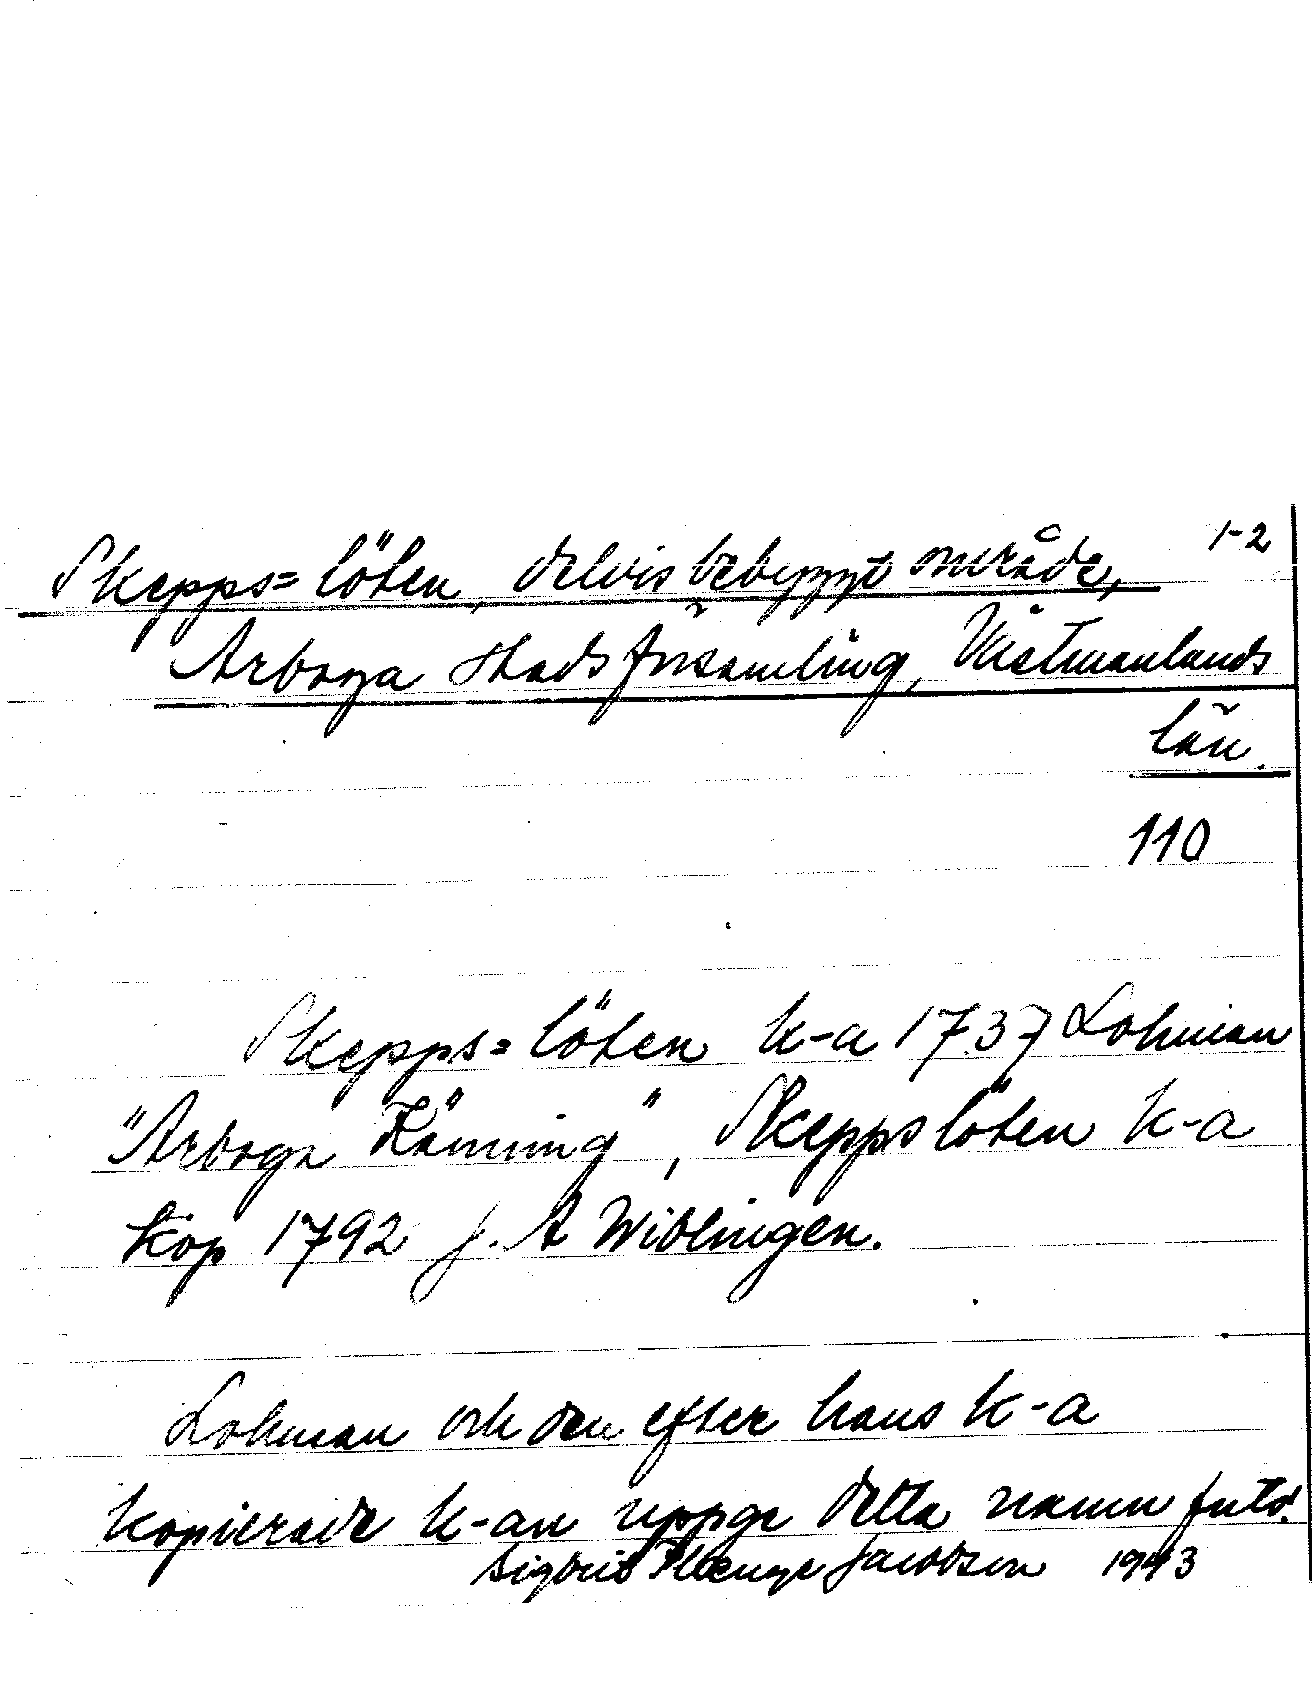 1-2
Skepps=löten, delvis bebyggt område,
Arboga stadsförsamling, Västmanlands
län.
110
Skepps=löten k-a 1737 Lohman
"Arboga Känning", Skeppslöten k-a
kop 1792 J. A Widlingen.
Lohman och den efter hans k-a
kopierade k-an uppge detta namn
Sigbrit Plænge Jacobson 1943